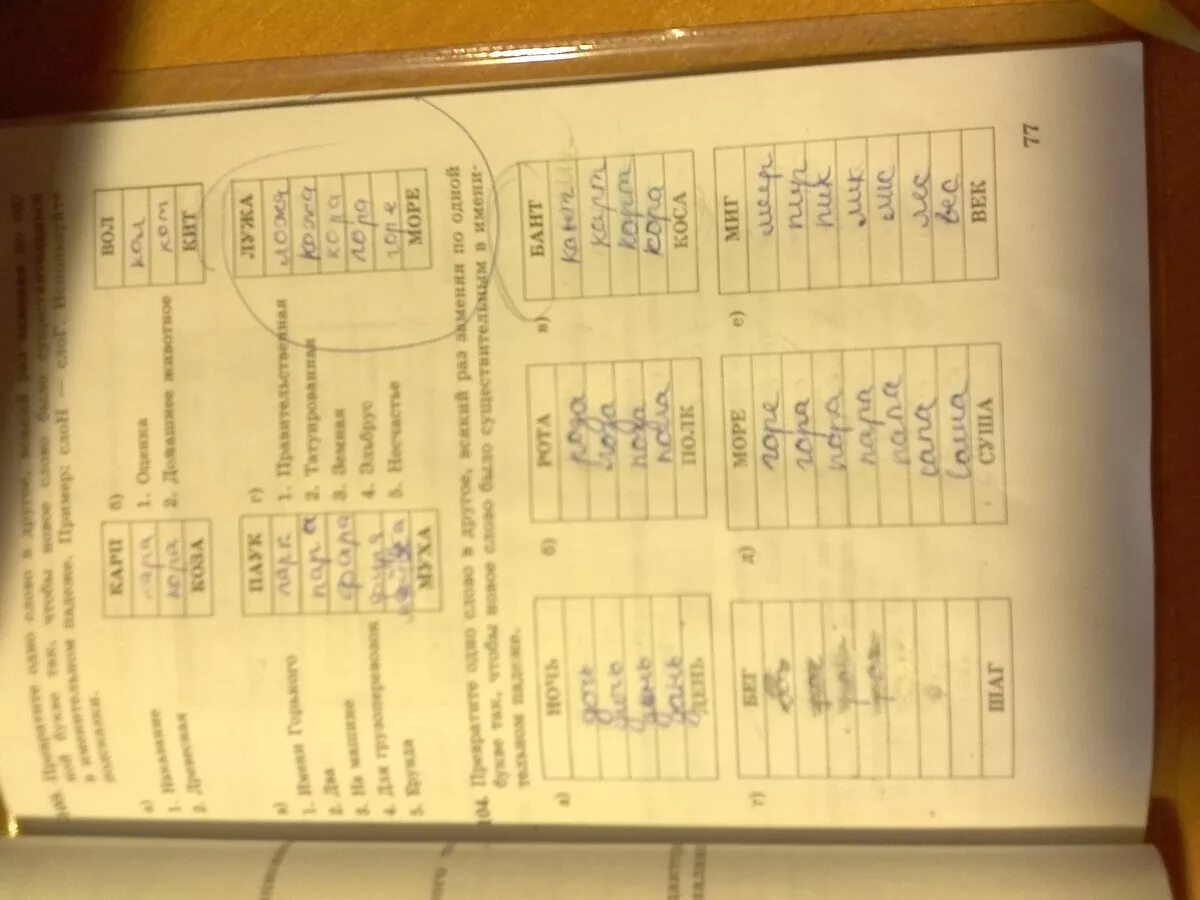 103. Превратите одно слово в другое, всякий раз заменяя по од-
ной букве так, чтобы новое слово было существительным
в именительном падеже. Пример: слоН — слоГ. Используйте
подсказки.
а)
1. Наказание
2. Древесная
КАРП
кара
кора
КОЗА
б)
1. Оценка
2. Домашнее животное
ВОЛ
кол
кот
КИТ
в)
1. Имени Горького
2. Два
3. На машине
4. Для грузоперевозок
5. Ерунда
ПАУК
парк
пара
фара
фура
МУХА
г)
1. Правительственная
2. Татуированная
3. Земная
4. Эльбрус
5. Несчастье
ЛУЖА
ложа
кожа
кора
гора
горе
МОРЕ
104. Превратите одно слово в другое, всякий раз заменяя по одной
букве так, чтобы новое слово было существительным в имени-
тельном падеже.
а)
НОЧЬ
дочь
день
дань
ДЕНЬ
б)
РОТА
рода
мода
пола
ПОЛК
в)
БАНТ
кант
карт
кора
КОСА
г)
БЕГ
ШАГ
д)
МОРЕ
горе
гора
пора
пара
папа
сапа
Саша
СУША
е)
МИГ
мир
пир
пик
лес
вес
ВЕК
77